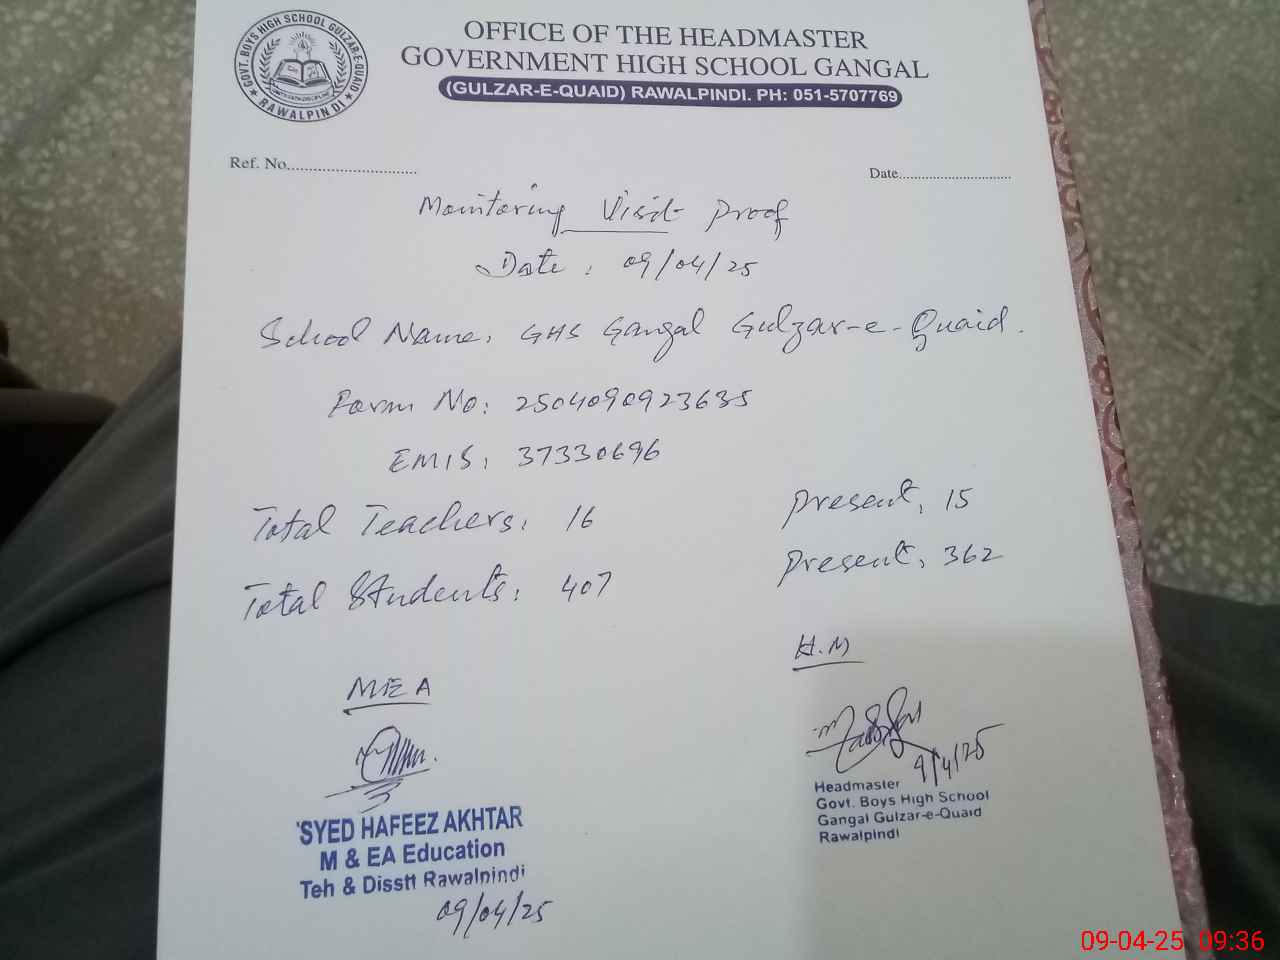 GOVT. BOYS HIGH SCHOOL GULZAR-E-QUAID
RAWALPINDI
OFFICE OF THE HEADMASTER
GOVERNMENT HIGH SCHOOL GANGAL
(GULZAR-E-QUAID) RAWALPINDI. PH: 051-5707769
Ref. No.............................
Date..............................
Monitoring Visit Proof
Date: 09/04/25
School Name: GHS Gangal Gulzar-e-Quaid.
Form No: 2504090923635
EMIS: 37330696
Total Teachers: 16 Present: 15
Total Students: 407 Present: 362
MEA
H.M
9/4/25
Headmaster
Govt. Boys High School
Gangal Gulzar-e-Quaid
Rawalpindi
SYED HAFEEZ AKHTAR
M & EA Education
Teh & Disstt Rawalpindi
09/04/25
09-04-25 09:36